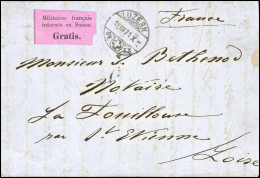 France
Militaires français
internés en Suisse.
Gratis.
LUZERN
Monsieur J. Bethenod
Notaire
La Fouillouse
par St Etienne
Loire